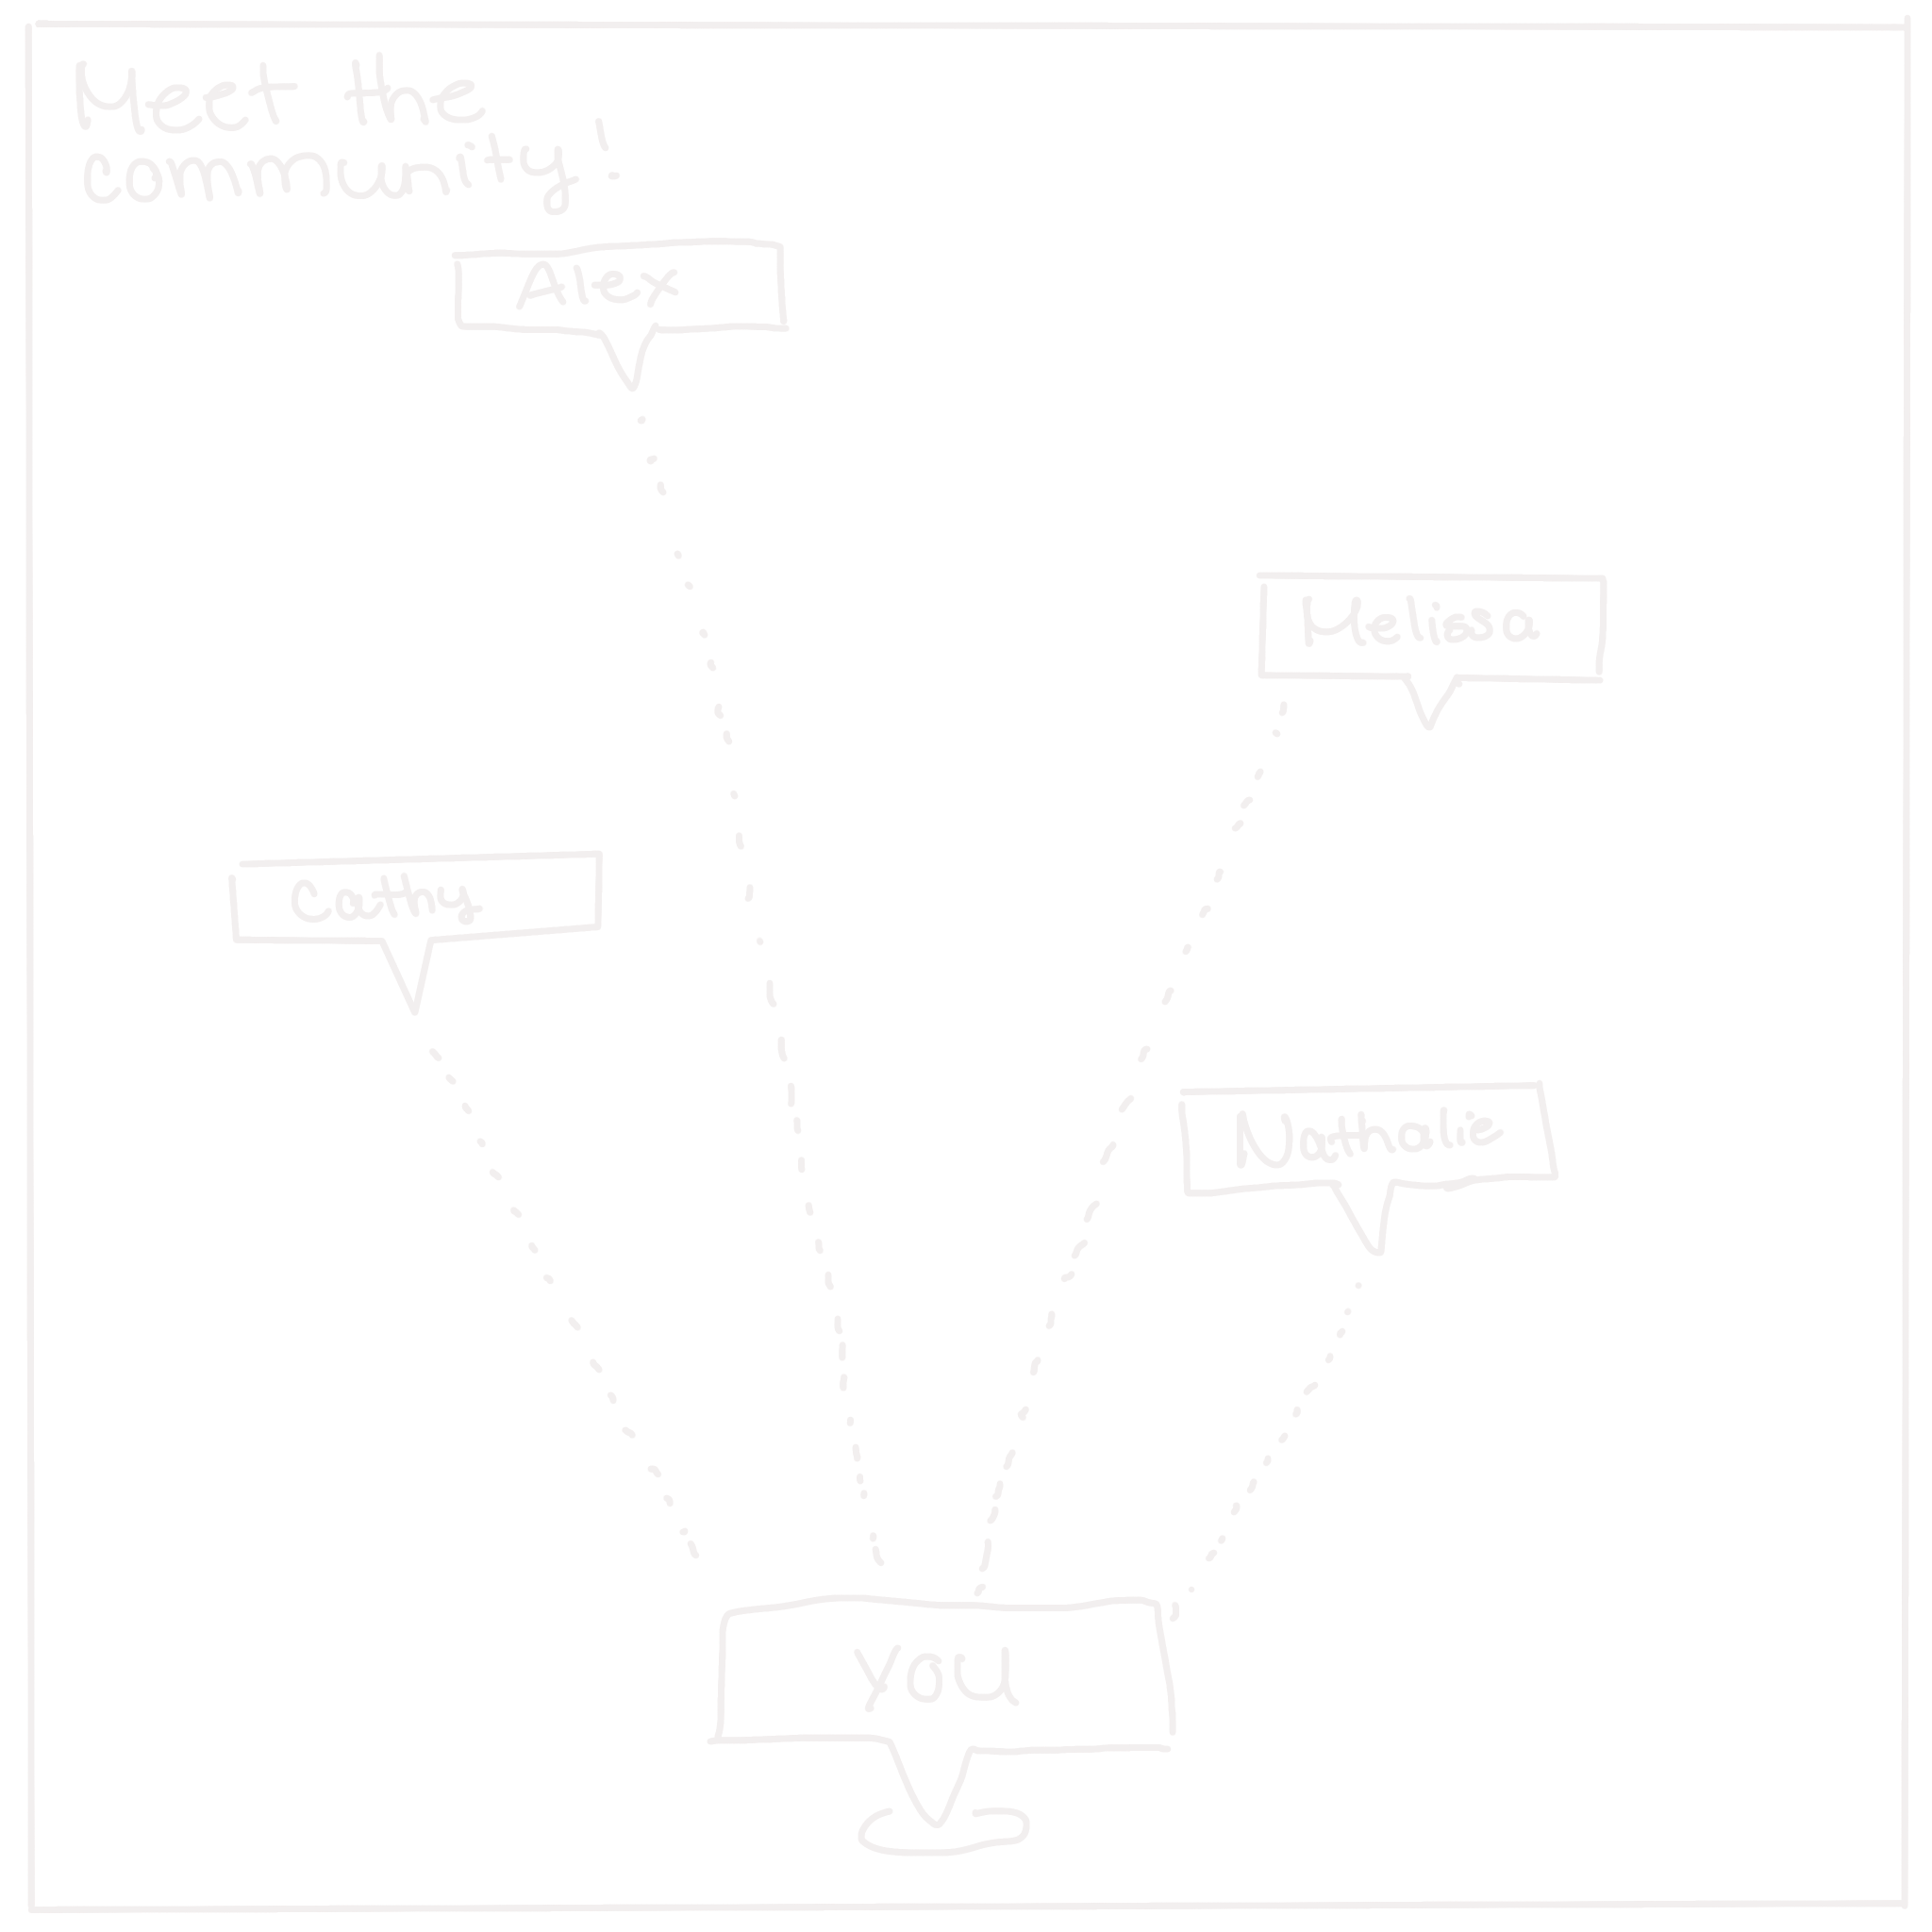 Meet the
community!
Alex
Melissa
Cathy
Nathalie
you